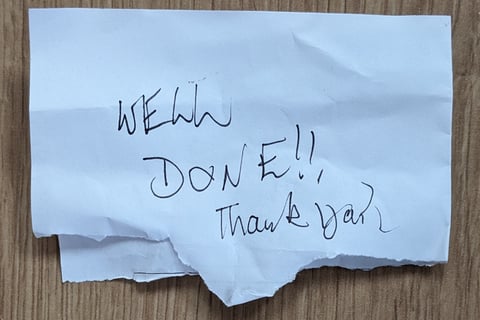 WELL
DONE!!
Thank you